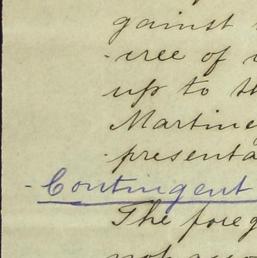 gainst
-cree of
up to th
Martine
presenta
- Contingent
The foreg